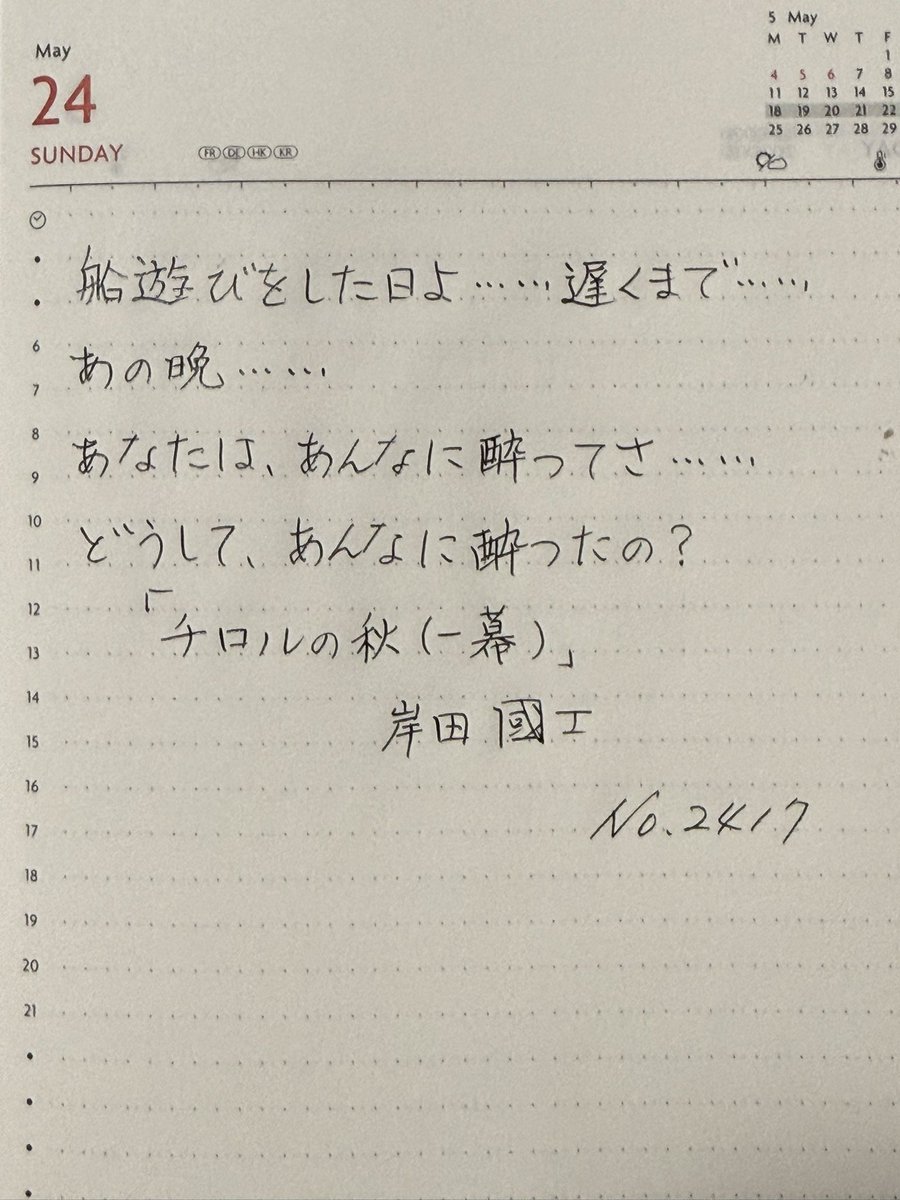 May
24
SUNDAY
FR DE HK KR
5 May
M T W T F
1
4 5 6 7 8
11 12 13 14 15
18 19 20 21 22
25 26 27 28 29
船遊びをした日よ……遅くまで……
6
あの晩……
7
8
あなたは、あんなに酔ってさ……
9
10
どうして、あんなに酔ったの？
11
12
「チロルの秋（一幕）」
13
14
岸田國士
15
16
No.2417
17
18
19
20
21